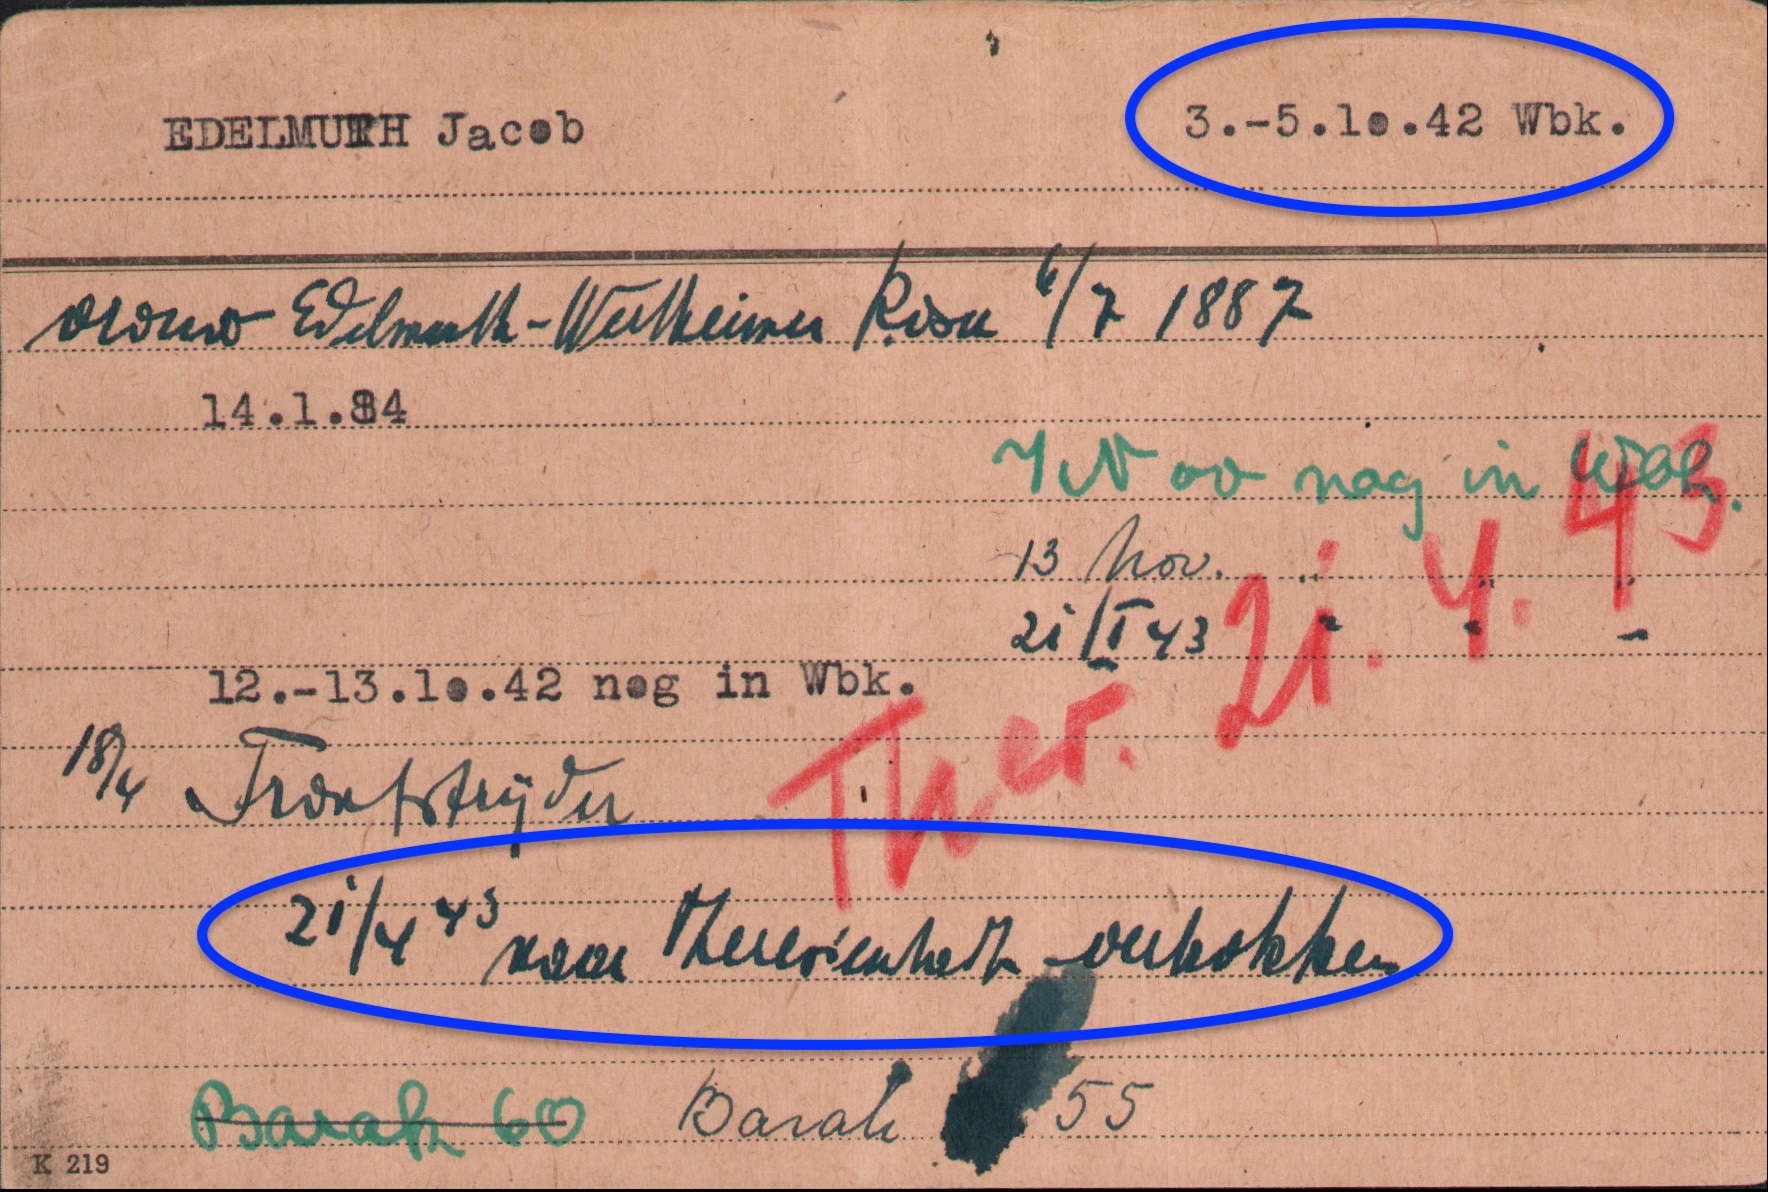 EDELMUTH Jacob 3.-5.10.42 Wbk.
vrouw Edelmuth-Wertheimer Rosa 6/7 1887
14.1.84
7 Nov nog in Wbk.
13 Nov. " " "
21/I 43 " " "
Ther. 21.4.43
12.-13.10.42 nog in Wbk.
18/4 Frontstrijder
21/4 43 naar Theresienstadt vertrokken
Barak 60 Barak 55
K 219